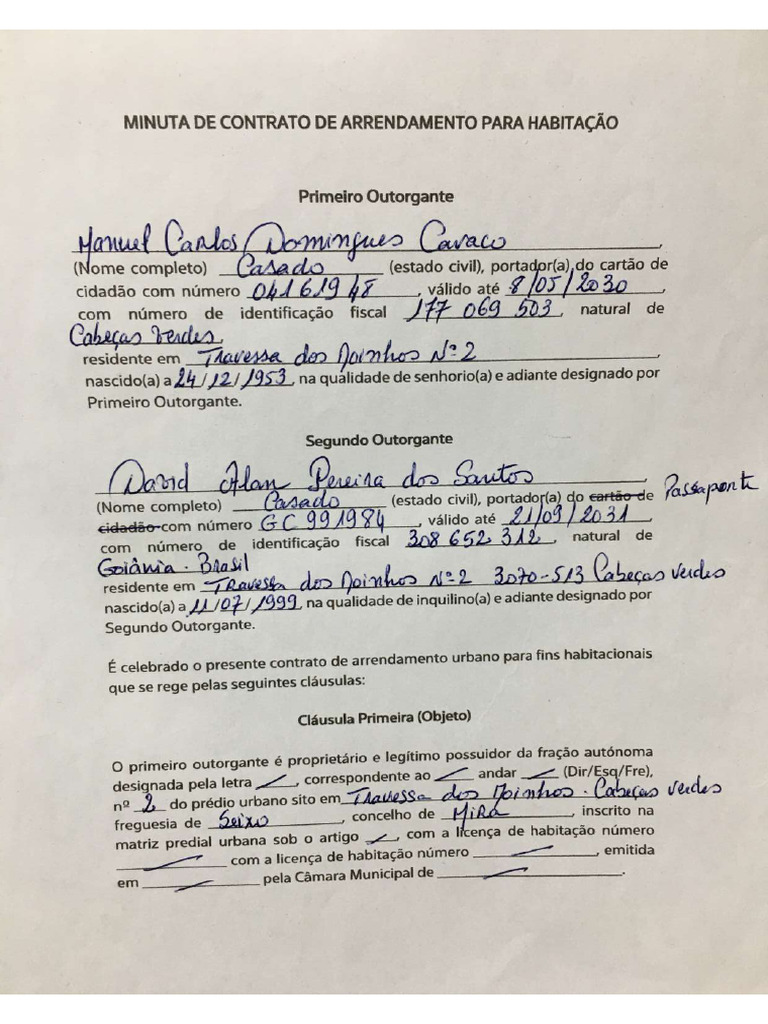 MINUTA DE CONTRATO DE ARRENDAMENTO PARA HABITAÇÃO
Primeiro Outorgante
Manuel Carlos Domingues Cavaco,
(Nome completo) Casado (estado civil), portador(a) do cartão de
cidadão com número 04161948, válido até 8/05/2030,
com número de identificação fiscal 177 069 503, natural de
Cabeças Verdes,
residente em Travessa dos Moinhos Nº 2,
nascido(a) a 24/12/1953, na qualidade de senhorio(a) e adiante designado por
Primeiro Outorgante.
Segundo Outorgante
David Alan Pereira dos Santos,
(Nome completo) Casado (estado civil), portador(a) do cartão de Passaporte
cidadão com número GC991984, válido até 21/09/2031,
com número de identificação fiscal 308 652 312, natural de
Goiânia - Brasil
residente em Travessa dos Moinhos Nº 2 3070-513 Cabeças Verdes
nascido(a) a 11/07/1999, na qualidade de inquilino(a) e adiante designado por
Segundo Outorgante.
É celebrado o presente contrato de arrendamento urbano para fins habitacionais
que se rege pelas seguintes cláusulas:
Cláusula Primeira (Objeto)
O primeiro outorgante é proprietário e legítimo possuidor da fração autónoma
designada pela letra —, correspondente ao — andar — (Dir/Esq/Fre),
nº 2 do prédio urbano sito em Travessa dos Moinhos - Cabeças Verdes
freguesia de Seixo, concelho de Mira, inscrito na
matriz predial urbana sob o artigo —, com a licença de habitação número
— com a licença de habitação número —, emitida
em — pela Câmara Municipal de —.